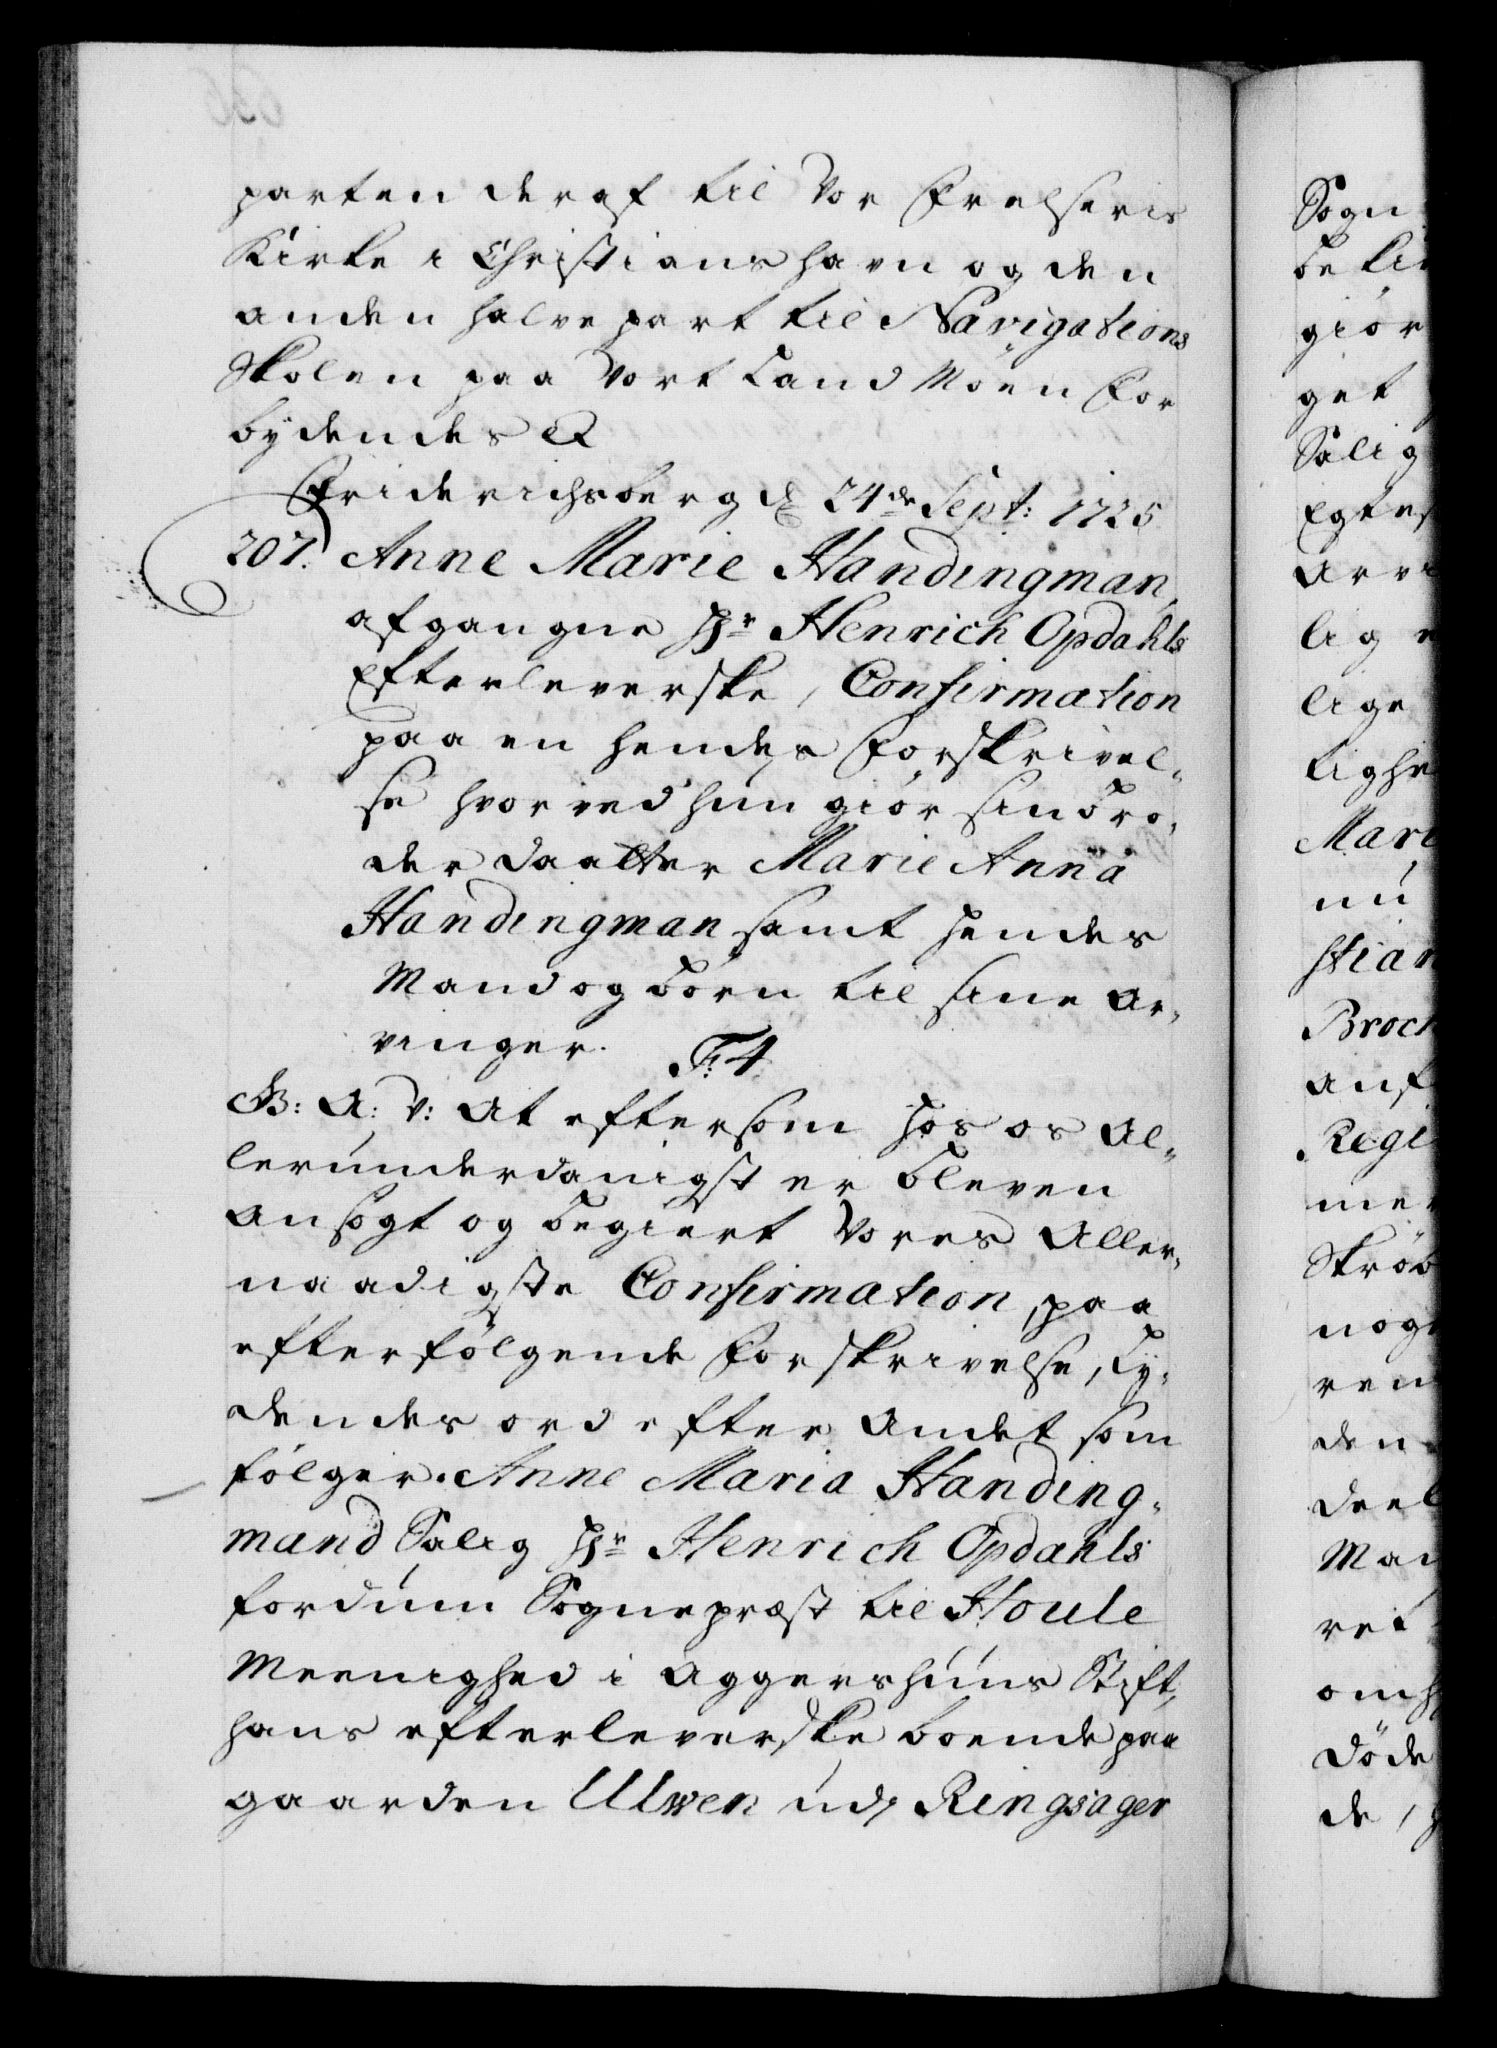 parten deraf til Vor Frelseris
Kirke i Christianshavn og den
anden halve part til Navigations
Skolen paa Vort Land Möen For
bydendes &
Friderichsberg d. 24de Sept: 1725
207. Anne Marie Handingman,
afgangne Hr Henrich Opdahls
Efterleverske, Confirmation
paa en hendes Forskrivel-
se hvorved hun giör sin Bro-
der Daatter Marie Anna
Handingman samt hendes
Mand og Börn til sine Ar-
vinger. F: 4
G: A: V: At eftersom hos os Al-
lerunderdanigst er bleven
ansögt og begiert Vores Aller-
naadigste Confirmation, paa
efterfölgende Forskrivelse, Ly-
dendes ord efter Andet som
fölger. Anne Maria Handing-
mand Salig Hr Henrich Opdahls
fordum Sognepræst til Houle
Meenighed i Aggershuus Stift,
hans efterleverske boende paa
gaarden Ulwen udj Ringsager
Sogn
giör
get
Salig
lige
Mari
nu
Broch
Regi
Döde
de,